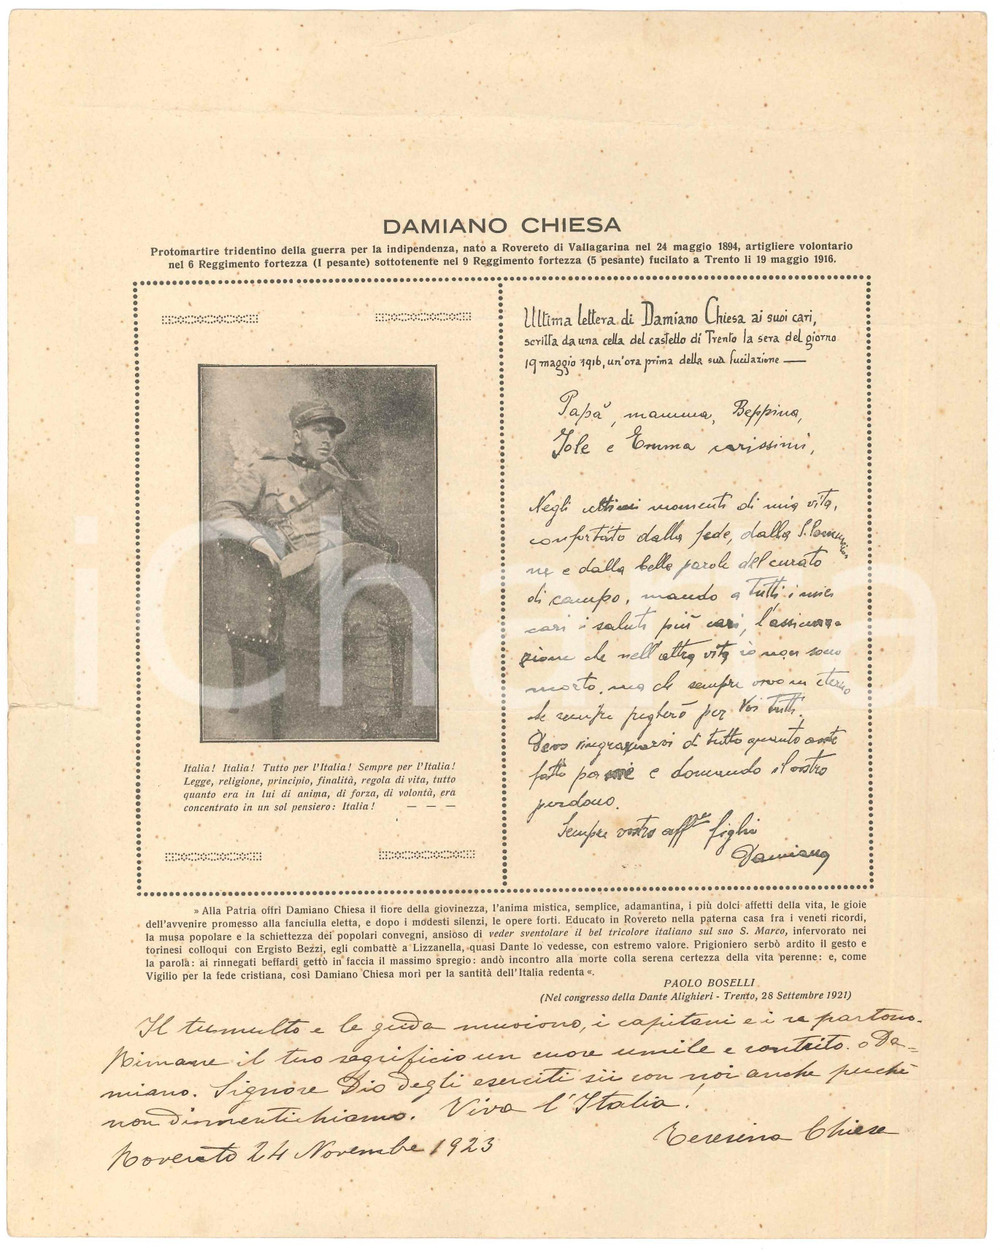 DAMIANO CHIESA
Protomartire tridentino della guerra per la indipendenza, nato a Rovereto di Vallagarina nel 24 maggio 1894, artigliere volontario
nel 6 Reggimento fortezza (I pesante) sottotenente nel 9 Reggimento fortezza (5 pesante) fucilato a Trento li 19 maggio 1916.
Italia! Italia! Tutto per l'Italia! Sempre per l'Italia!
Legge, religione, principio, finalità, regola di vita, tutto
quanto era in lui di anima, di forza, di volontà, era
concentrato in un sol pensiero: Italia! — — —
Ultima lettera di Damiano Chiesa ai suoi cari,
scritta da una cella del castello di Trento la sera del giorno
19 maggio 1916, un'ora prima della sua fucilazione —
Papà, mamma, Beppina,
Jole e Emma carissimi,
Negli ultimi momenti di mia vita,
confortato dalla fede, dalla S. Comunio
ne e dalla bella parola del curato
di campo, mando a tutti i miei
cari i saluti più cari, l'assicura-
zione che nell'altra vita io non sono
morto, ma che sempre vivo in eterno
che sempre pregherò per Voi tutti.
Devo ringraziarvi di tutto quanto avete
fatto per me e domando il vostro
perdono.
Sempre vostro aff.mo figlio
Damiano
» Alla Patria offrì Damiano Chiesa il fiore della giovinezza, l'anima mistica, semplice, adamantina, i più dolci affetti della vita, le gioie
dell'avvenire promesso alla fanciulla eletta, e dopo i modesti silenzi, le opere forti. Educato in Rovereto nella paterna casa fra i veneti ricordi,
la musa popolare e la schiettezza dei popolari convegni, ansioso di veder sventolare il bel tricolore italiano sul suo S. Marco, infervorato nei
torinesi colloqui con Ergisto Bezzi, egli combattè a Lizzanella, quasi Dante lo vedesse, con estremo valore. Prigioniero serbò ardito il gesto e
la parola: ai rinnegati beffardi gettò in faccia il massimo spregio: andò incontro alla morte colla serena certezza della vita perenne: e, come
Vigilio per la fede cristiana, così Damiano Chiesa morì per la santità dell'Italia redenta «.
PAOLO BOSELLI
(Nel congresso della Dante Alighieri - Trento, 28 Settembre 1921)
Il tumulto e le grida muoiono, i capitani e i re partono.
Rimane il tuo sagrificio un cuore umile e contrito. o Da=
miano. Signore Dio degli eserciti sii con noi anche perchè
non dimentichiamo. Viva l'Italia.
Teresina Chiesa
Rovereto 24 Novembre 1923
iCharta